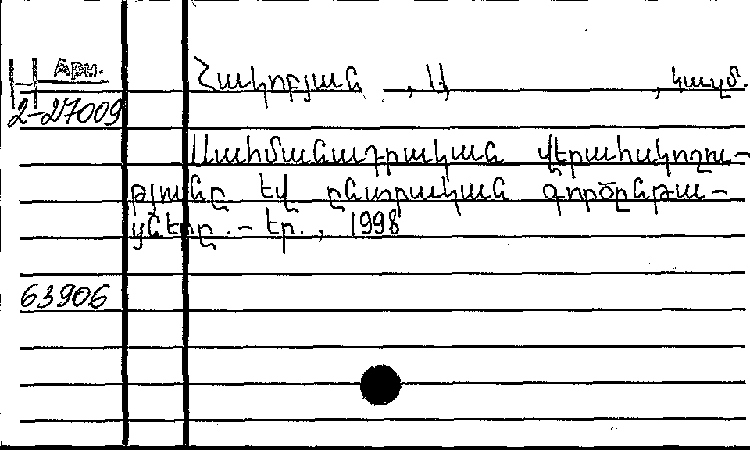 Արխ.
2-27009
Հակոբյան , Ա , կազմ.
Սահմանադրական վերահսկողու-
թյունը եվ ընտրական գործընթա-
ցները. - Եր. , 1998
63906